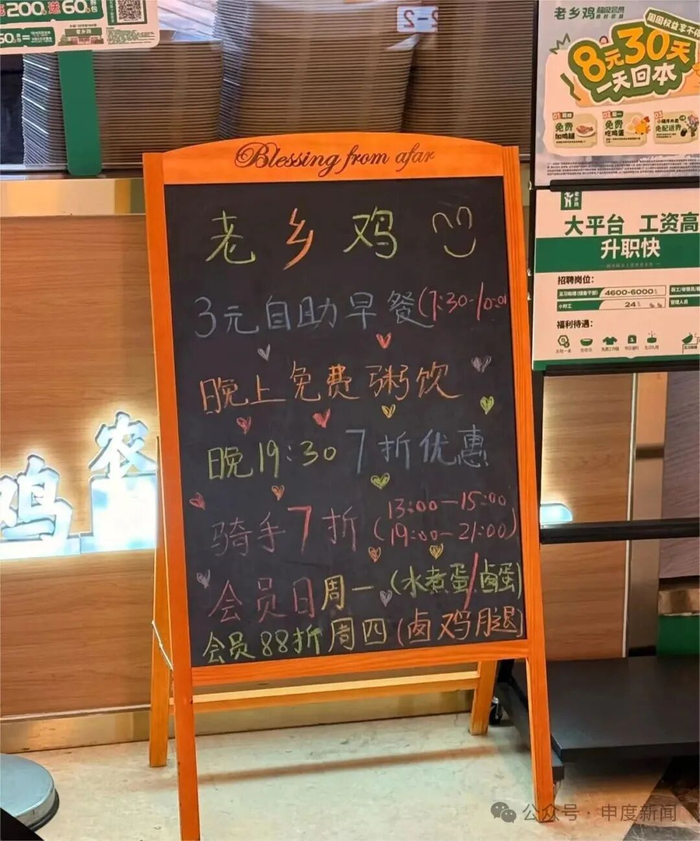 200 送 60
60元=
2-2
老乡鸡 超级会员
周周权益享不停
8元30天
一天回本
免费
加鸡腿
免费
吃鸡蛋
免配送费
Blessing from afar
老乡鸡
3元自助早餐(7:30-10:00
晚上免费粥饮
晚19:30 7折优惠
骑手7折(13:00—15:00
19:00—21:00)
会员日周一(水煮蛋/卤蛋)
会员88折周四(卤鸡腿)
大平台 工资高
升职快
招聘岗位:
4600-6000
小时工 24
管理人员
福利待遇:
鸡 农
公众号·申度新闻